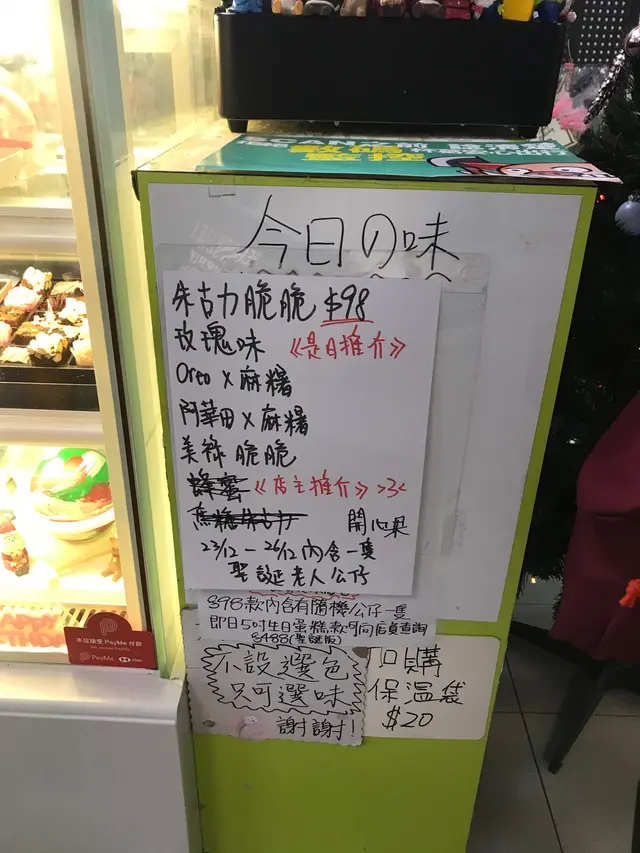 今日の味
朱古力脆脆 $98
玫瑰味 《是日推介》
Oreo x 麻糬
阿華田 x 麻糬
美祿脆脆
蜂蜜《店主推介》>3<
焦糖朱古力 開心果
23/12 - 26/12 內含一隻
聖誕老人公仔
$98款內含有隨機公仔一隻
即日5吋生日蛋糕款可向店員查詢
$188(聖誕版)
不設選色
只可選味
謝謝!
加購
保溫袋
$20
本店接受 PayMe 付款
PayMe